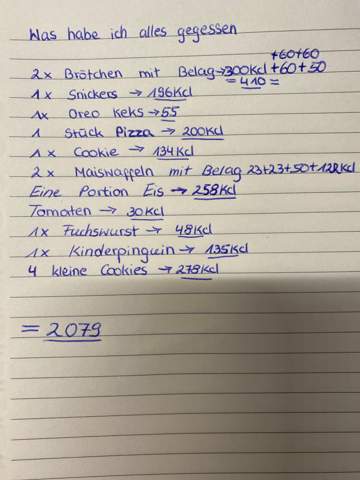 Was habe ich alles gegessen
+60+60
2x Brötchen mit Belag→300Kcl +60+50
=410=
1x Snickers → 196Kcl
1x Oreo Keks →55
1 Stück Pizza → 200Kcl
1x Cookie → 134Kcl
2x Maiswaffeln mit Belag 23+23+50+128Kcl
Eine Portion Eis → 258Kcl
Tomaten → 30Kcl
1x Fuchswurst → 48Kcl
1x Kinderpinguin → 135Kcl
4 kleine Cookies → 278Kcl
= 2079